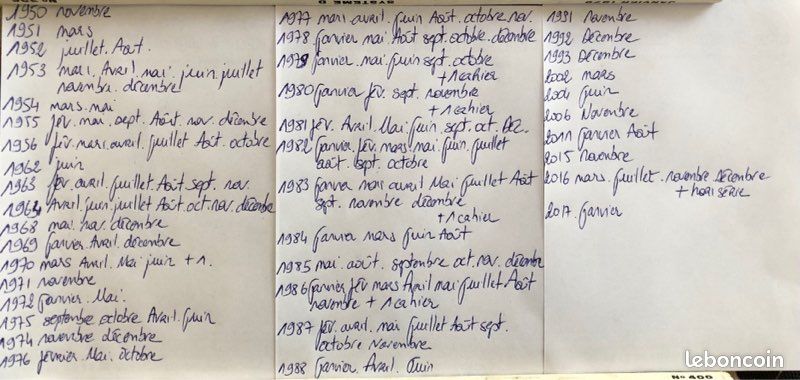 1950 novembre
1951 mars
1952 juillet. Août.
1953 mars. Avril. mai. juin. juillet
novembre. décembre
1954 mars. mai
1955 fév. mai. sept. Août. nov. décembre
1956 fév. mars. avril. juillet Août. octobre
1962 juin
1963 fév. avril. juillet. Août sept. nov.
1964 Avril. juin. juillet Août. oct. nov. décembre
1968 mai. nov. décembre
1969 janvier. Avril. décembre
1970 mars Avril. Mai juin + 1.
1971 novembre
1972 janvier. Mai.
1975 septembre octobre Avril. juin
1974 novembre décembre
1976 février. Mai. octobre
1977 mars avril. juin Août. octobre. nov.
1978 janvier mai Août sept. octobre. décembre
1979 janvier. mai juin sept. octobre
+ 1 cahier
1980 janvier fév. sept. novembre
+ 1 cahier
1981 fév. Avril. Mai juin. sept. oct. DEC.
1982 janvier. fév. mars. mai. juin. juillet
août. sept. octobre
1983 janvier mars avril Mai juillet Août
sept. novembre décembre
+ 1 cahier
1984 janvier mars juin Août
1985 mai. août. septembre oct. nov. décembre
1986 janvier fév mars Avril mai juillet Août
novembre + 1 cahier
1987 fév. avril. mai juillet Août sept.
octobre Novembre
1988 janvier Avril. Juin
1991 Novembre
1992 Décembre
1993 Décembre
2002 mars
2004 juin
2006 Novembre
2011 janvier Août
2015 novembre
2016 mars. juillet. novembre Décembre
+ hors série
2017. janvier
leboncoin
N° 400